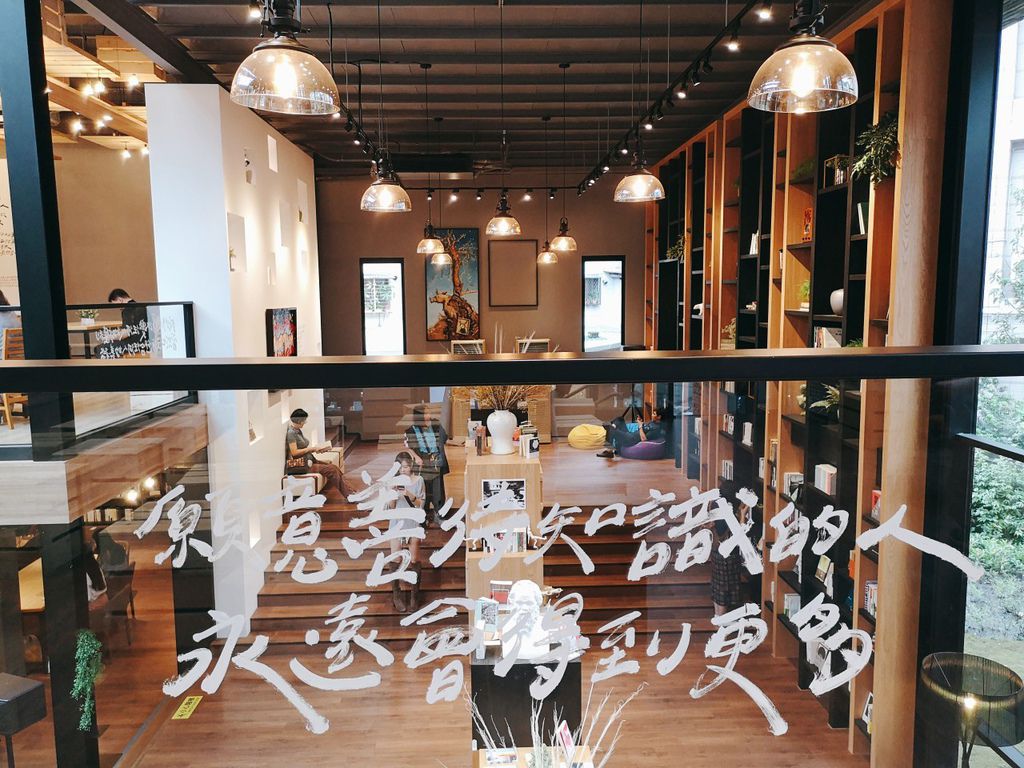 願意善待知識的人
永遠會得到更多